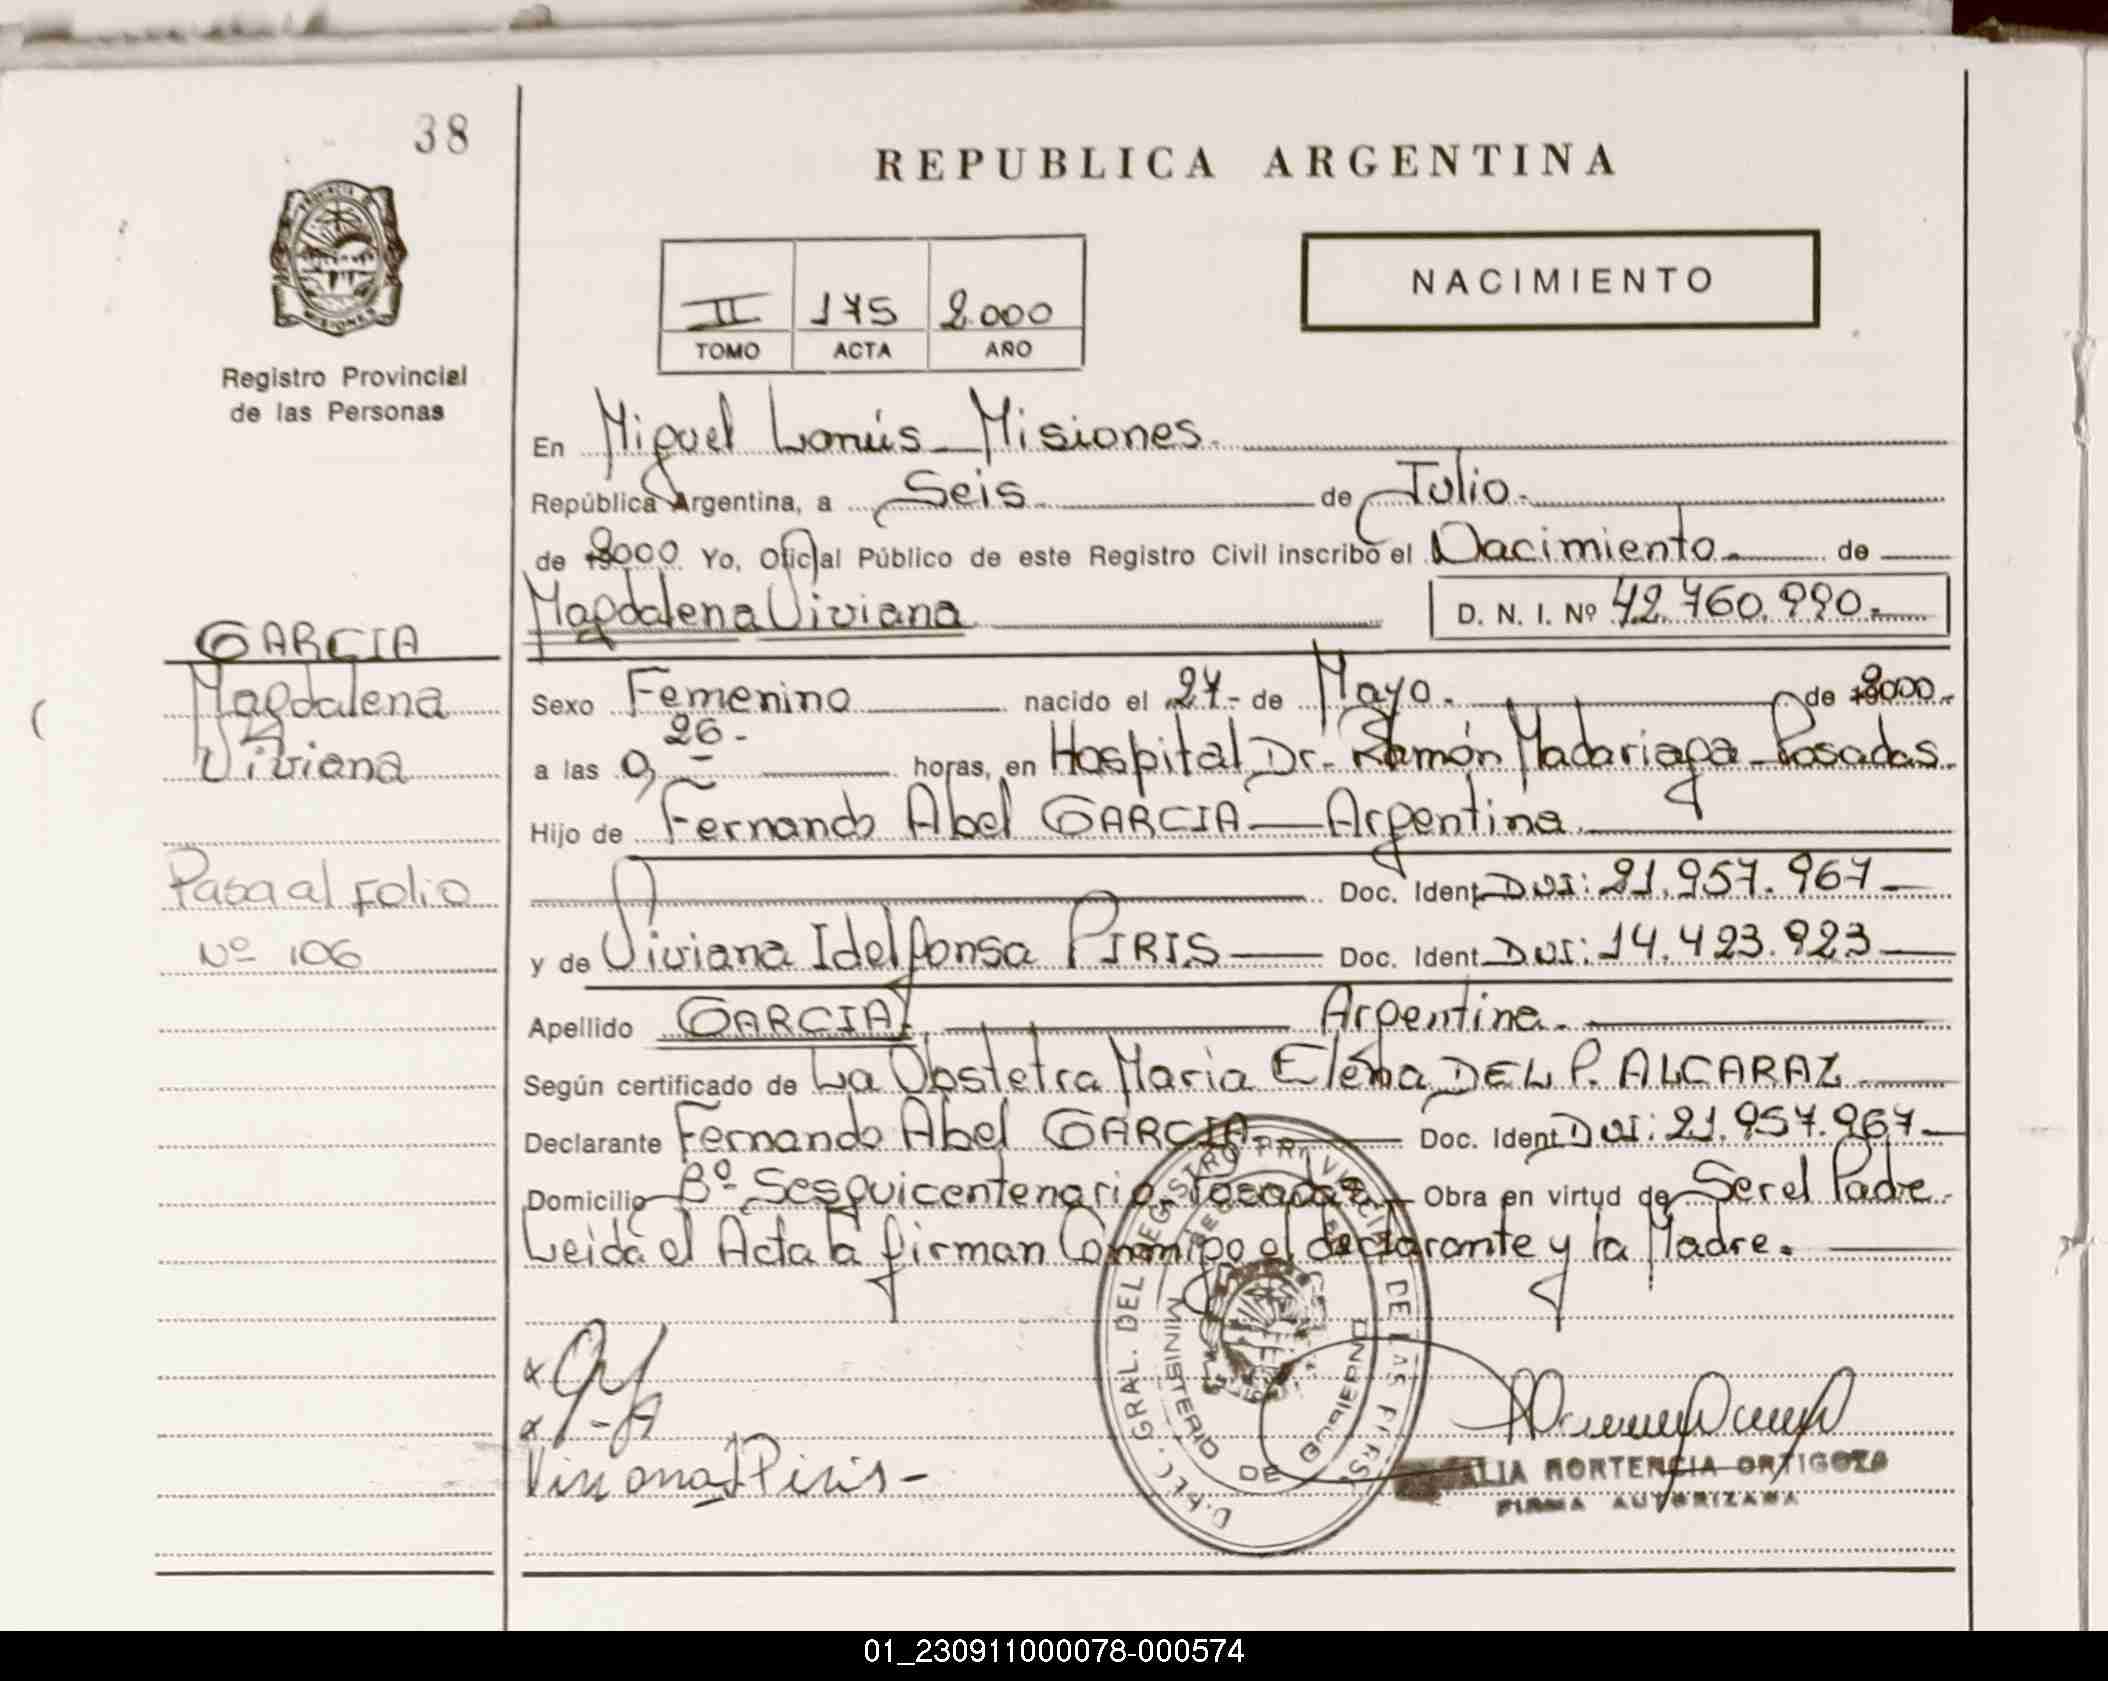 38
REPUBLICA ARGENTINA
NACIMIENTO
II 175 2.000
TOMO ACTA AÑO
Registro Provincial
de las Personas
En Miguel Lanús - Misiones.
República Argentina, a Seis de Julio.
de 2000 Yo, Oficial Público de este Registro Civil inscribo el Nacimiento. de
Magdalena Viviana D. N. I. Nº 42.760.990.
GARCIA
Magdalena
Viviana
Sexo Femenino nacido el 27- de Mayo. de 2000.
a las 0,26.- horas, en Hospital Dr. Ramón Madariaga - Posadas.
Hijo de Fernando Abel GARCIA — Argentina.
Doc. Ident. DNI: 21.957.967
Pasa al Folio
Nº 106
y de Viviana Idelfonsa PIRIS Doc. Ident. DNI: 14.423.923
Apellido GARCIA. Argentina.
Según certificado de La Obstetra Maria Elena DEL P. ALCARAZ
Declarante Fernando Abel GARCIA Doc. Ident. DNI: 21.957.967
Domicilio Bº Sesquicentenario - Posadas Obra en virtud de Ser el Padre
Leida el Acta la firman Conmigo el declarante y la Madre.
DIREC. GRAL. DEL REGISTRO PROVINCIAL DE LAS PERS
MINISTERIO DE GOBIERNO
Viviana I Piris -
HORTENCIA ORTIGOZA
FIRMA AUTORIZADA
01_230911000078-000574